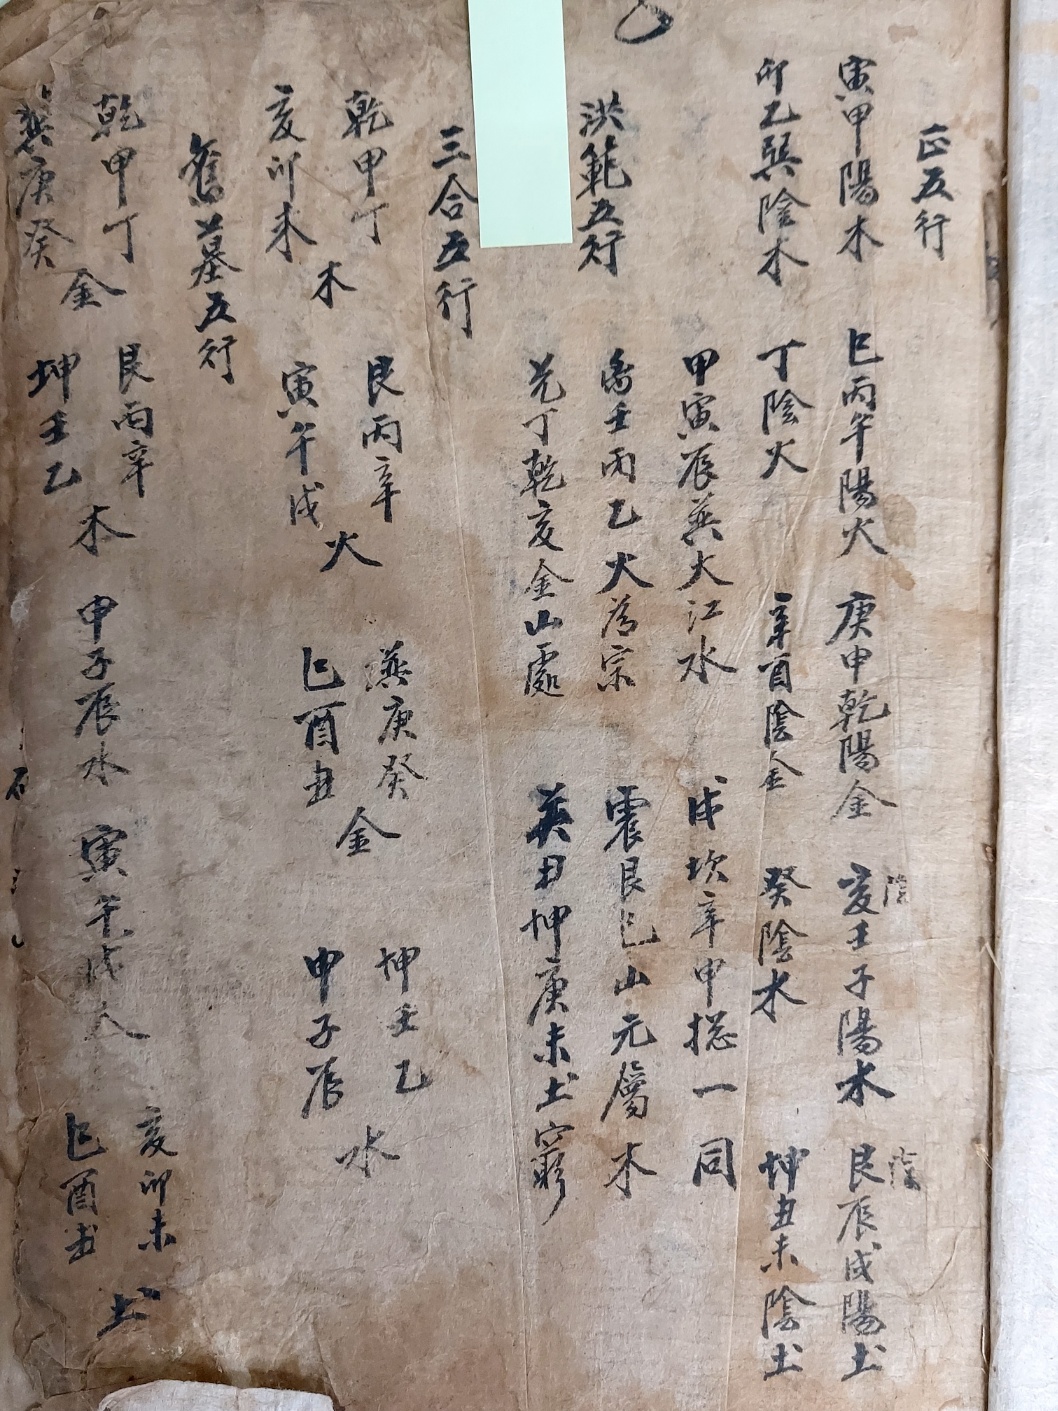 正五行
寅甲陽木 巳丙午陽火 庚申乾陽金 亥壬子陽水 艮辰戌陽土
陰
陰
卯乙巽陰木 丁陰火 辛酉陰金 癸陰水 坤丑未陰土
甲寅辰巽大江水 戌坎辛申揔一同
洪範五行
离壬丙乙火為宗 震艮巳山元屬木
兑丁乾亥金山處 癸丑坤庚未土窮
三合五行
乾甲丁 艮丙辛 巽庚癸 坤壬乙
亥卯未 寅午戌 巳酉丑 申子辰
木 火 金 水
墓五行
乾甲丁 艮丙辛 申子辰水 寅午戌火 亥卯未
巽庚癸 坤壬乙 巳酉丑
金 木 土